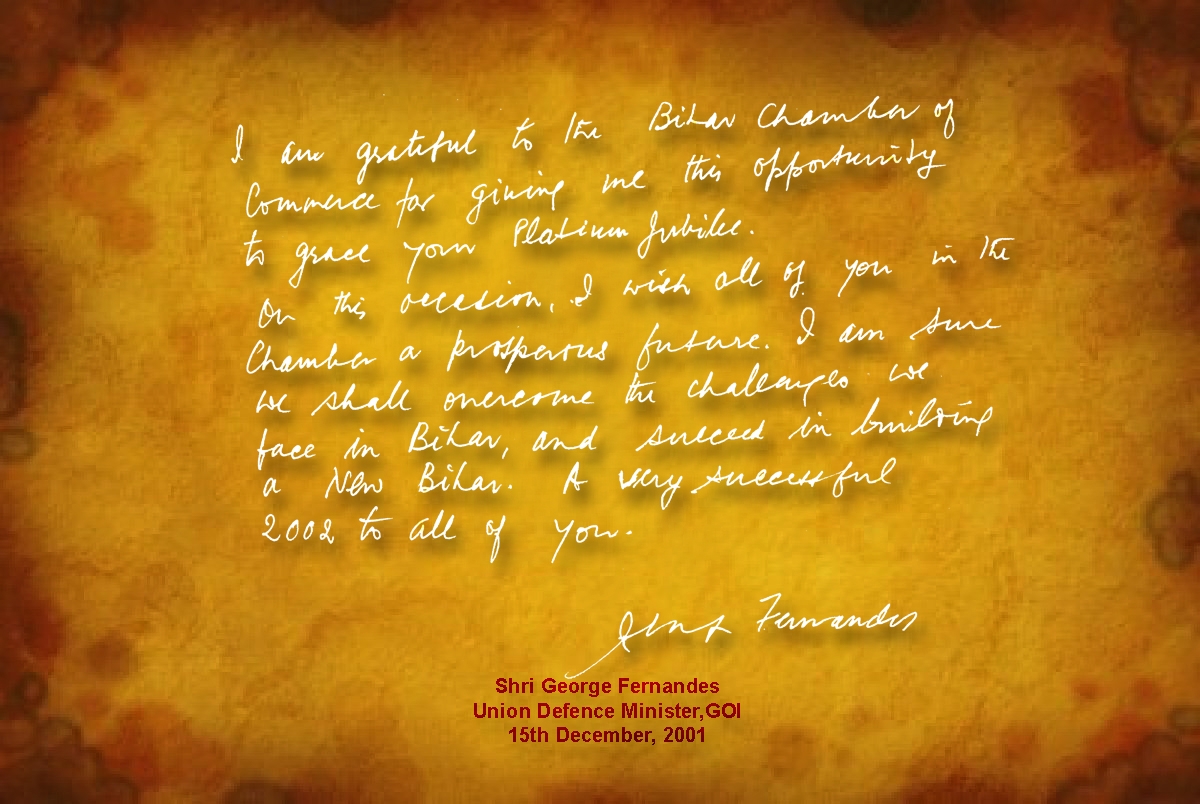 I am grateful to the Bihar Chamber of
Commerce for giving me this opportunity
to grace your Platinum Jubilee.
On this occasion, I wish all of you in the
Chamber a prosperous future. I am sure
we shall overcome the challenges we
face in Bihar, and succeed in building
a New Bihar. A very successful
2002 to all of you.
George Fernandes
Shri George Fernandes
Union Defence Minister,GOI
15th December, 2001